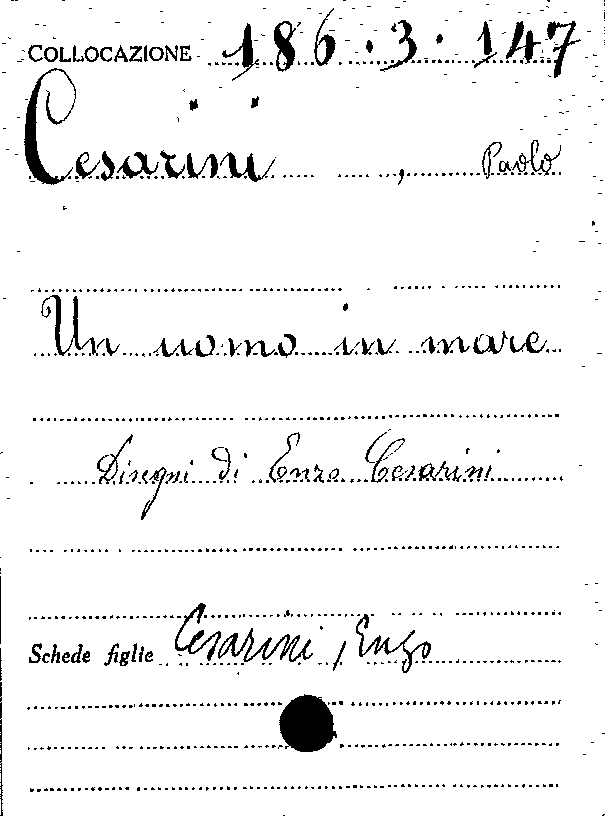 COLLOCAZIONE 186.3.147
Cesarini, Paolo
Un uomo in mare
Disegni di Enzo Cesarini
Schede figlie Cesarini, Enzo